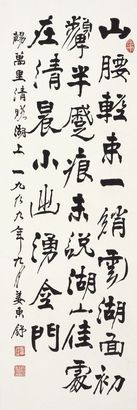 山腰輕束一綃雲湖面初
顰半蹙痕未說湖山佳處
在清晨小出湧金門
楊萬里清曉湖上一九九九年九月姜東舒